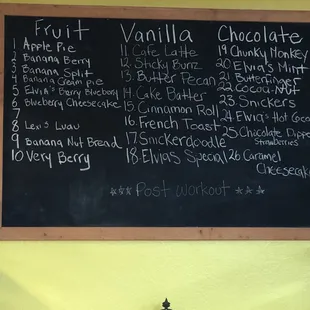 Fruit
1 Apple Pie
2 Banana Berry
3 Banana Split
4 Banana Cream Pie
5 Elvia's Berry Blueboby
6 Blueberry Cheesecake
7
8 Lexi's Luau
9 Banana Nut Bread
10 Very Berry
Vanilla
11 Cafe Latte
12 Sticky Bunz
13 Butter Pecan
14 Cake Batter
15 Cinnamon Roll
16 French Toast
17 Snickerdoodle
18 Elvias Special
Chocolate
19 Chunky Monkey
20 Elvia's Mint
21 Butterfinger
22 Cocoa-Nut
23 Snickers
24 Elvia's Hot Cocoa
25 Chocolate Dippe
Strawberries
26 Caramel
Cheesecake
*** Post Workout ***